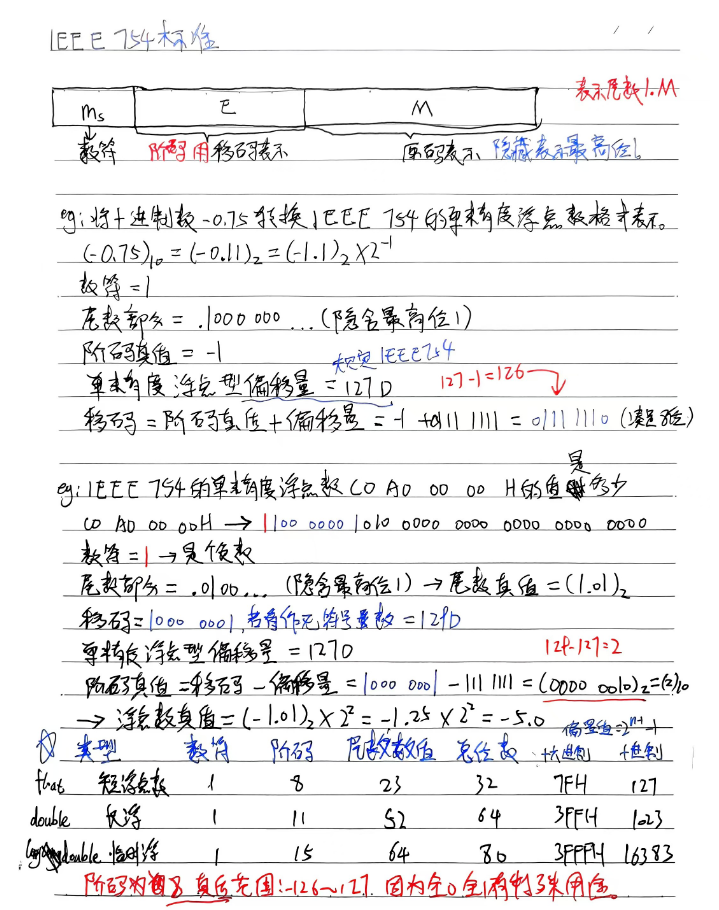 IEEE 754标准
表示尾数1.M
ms E M
数符 阶码用移码表示 原码表示 隐藏表示最高位1
eg:将十进制数-0.75转换IEEE 754的单精度浮点数格式表示。
(-0.75)10 = (-0.11)2 = (-1.1)2 × 2^-1
数符 = 1
尾数部分 = .1000 000 ... (隐含最高位1)
阶码真值 = -1
规定IEEE754
单精度浮点型偏移量 = 127D 127-1=126
移码 = 阶码真值 + 偏移量 = -1 + 0111 1111 = 0111 1110 (凑足8位)
eg:IEEE 754的单精度浮点数 C0 A0 00 00 H的值是多少
C0 A0 00 00H → 1100 0000 1010 0000 0000 0000 0000 0000
数符 = 1 → 是个负数
尾数部分 = .0100... (隐含最高位1) → 尾数真值 = (1.01)2
移码 = 1000 0001, 若看作无符号整数 = 129D
单精度浮点型偏移量 = 127D 129-127=2
阶码真值 = 移码 - 偏移量 = 1000 0001 - 111 1111 = (0000 0010)2 = (2)10
→ 浮点数真值 = (-1.01)2 × 2^2 = -1.25 × 2^2 = -5.0 偏置值=2^n-1 -1
类型 数符 阶码 尾数数值 总位数 十六进制 十进制
float 短浮点数 1 8 23 32 7FH 127
double 长浮 1 11 52 64 3FFH 1023
long double 临时浮 1 15 64 80 3FFFH 16383
阶码为8 真值范围:-126~127. 因为全0全1有特殊用途。